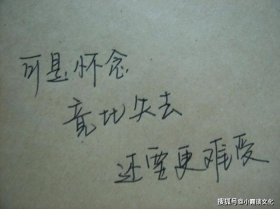 可是怀念
竟比失去
还要更难受
搜狐号@小霞读文化